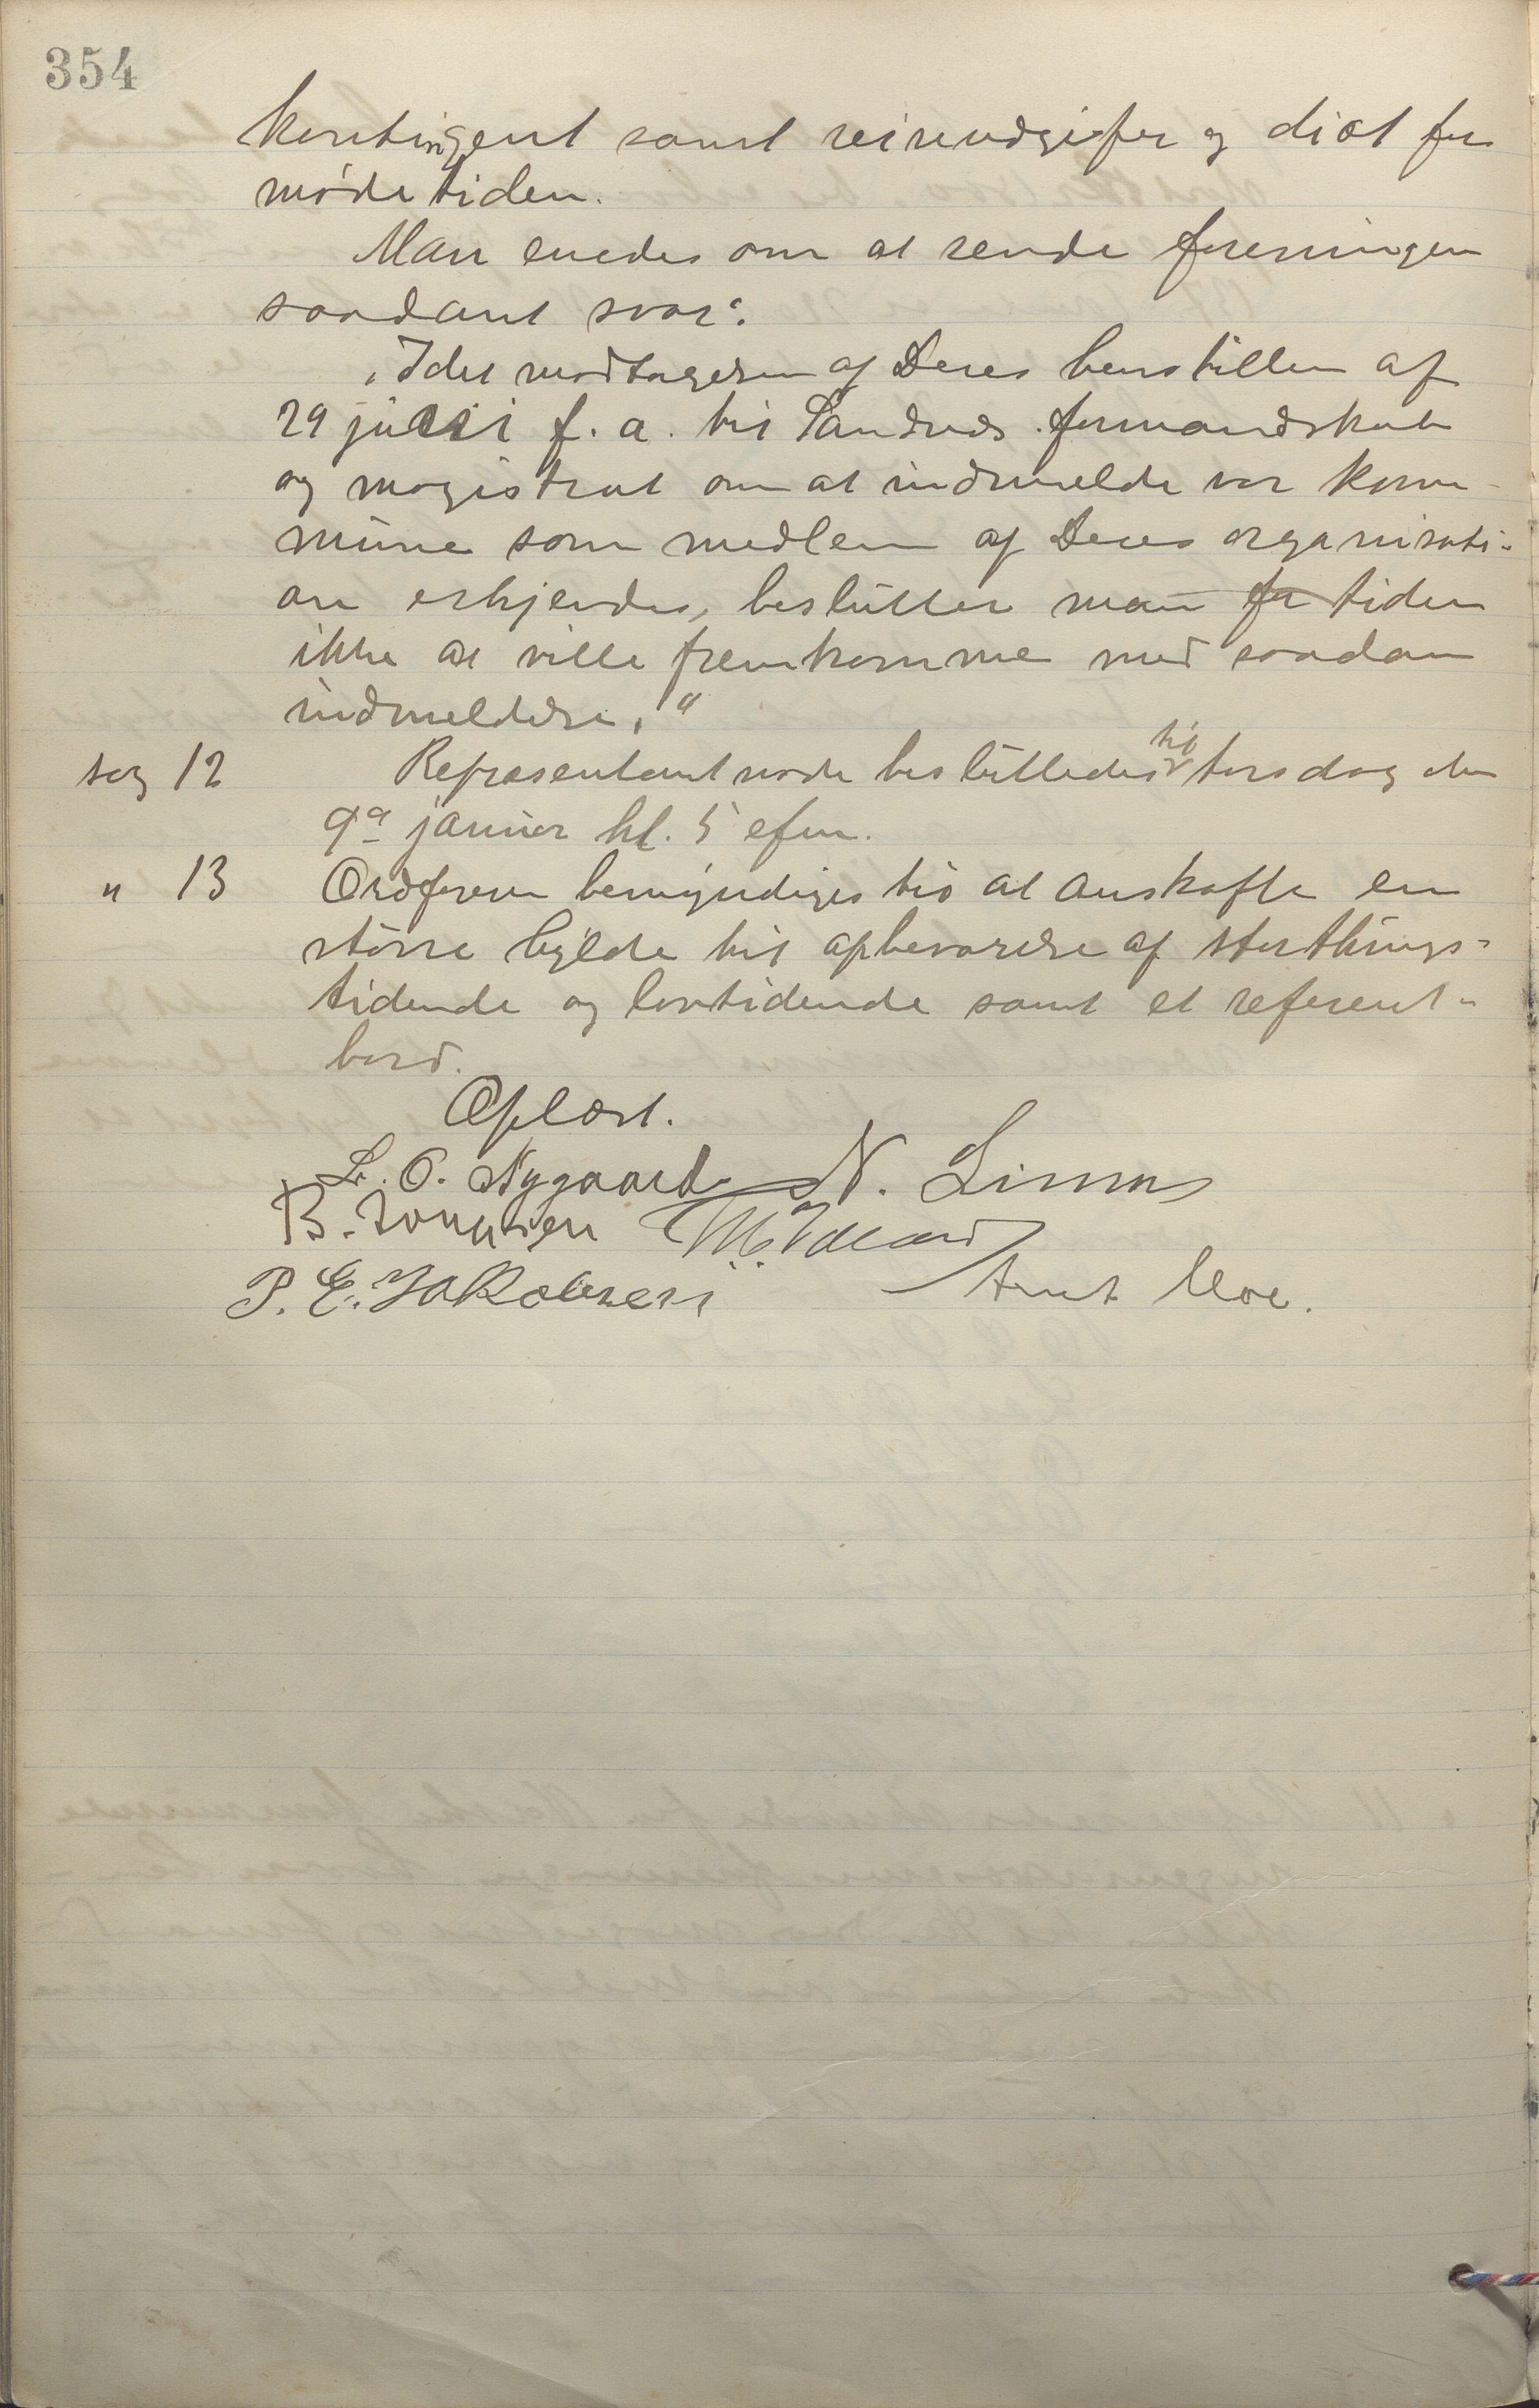 354
kontingent samt reiseudgifter og diæt for
mødetiden.
Man enedes om at sende foreningen
saadant svar:
„Idet modtagelsen af Deres henstillen af
29 juni f. a. til Sandnes formandskab
og magistrat om at indmelde vor kom-
mune som medlem af Deres organisati-
on erkjendes, beslutter man for tiden
ikke at ville fremkomme med saadan
indmeldelse."
sag 12 Repræsentantmøde besluttedes til torsdag den
9de januar kl. 5 efm.
" 13 Ordføreren bemyndiges til at anskaffe en
større hylde til opbevarelse af storthings-
tidende og lovtidende samt et referent-
bord.
Oplæst.
L. O. Nygaard N. Simms
B. Tønnesen M.
P. E. Jakobsen Aret Moe.